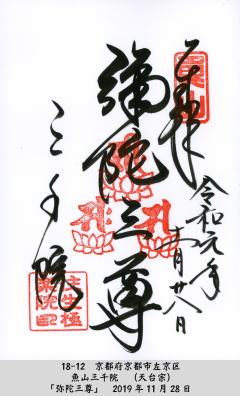 奉拝
令和元年
十一月廿八日
弥陀三尊
三千院
18-12 京都府京都市左京区
魚山三千院 (天台宗)
「弥陀三尊」 2019年11月28日